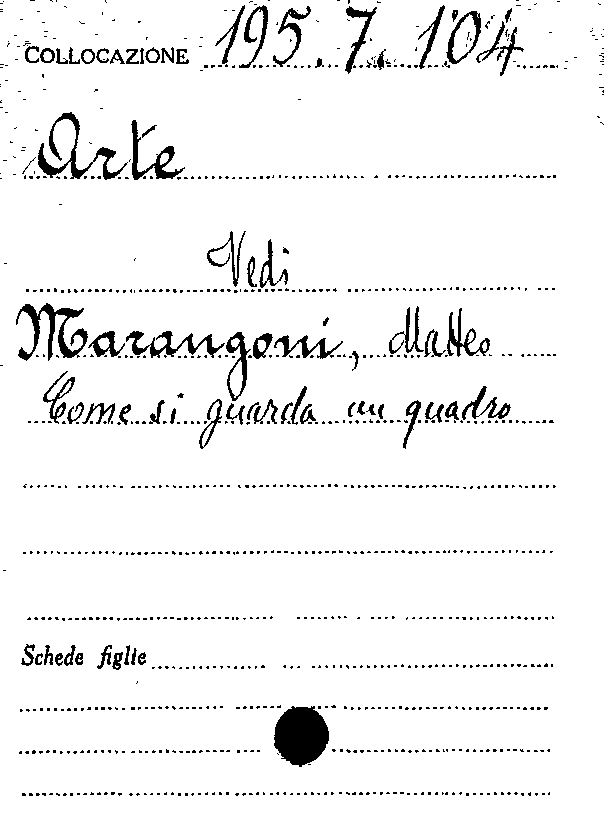 COLLOCAZIONE 195.7.104
Arte
Vedi
Marangoni, Matteo
Come si guarda un quadro
Schede figlie